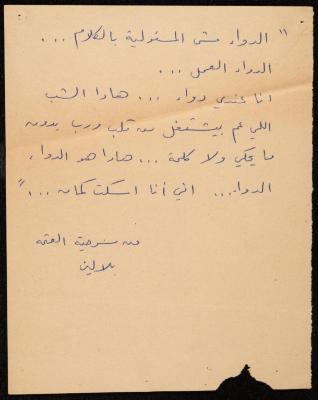 " الدواء مش المسئولية بالكلام ...
الدواء العمل ...
انا عندي دواء ... هادا الشب
اللي عم بيشتغل من قلب ورب بدون
ما يحكي ولا كلمة ... هادا هو الدواء
الدواء... اني أنا اسكت كمان ... "
من مسرحية العتمة
بلالين